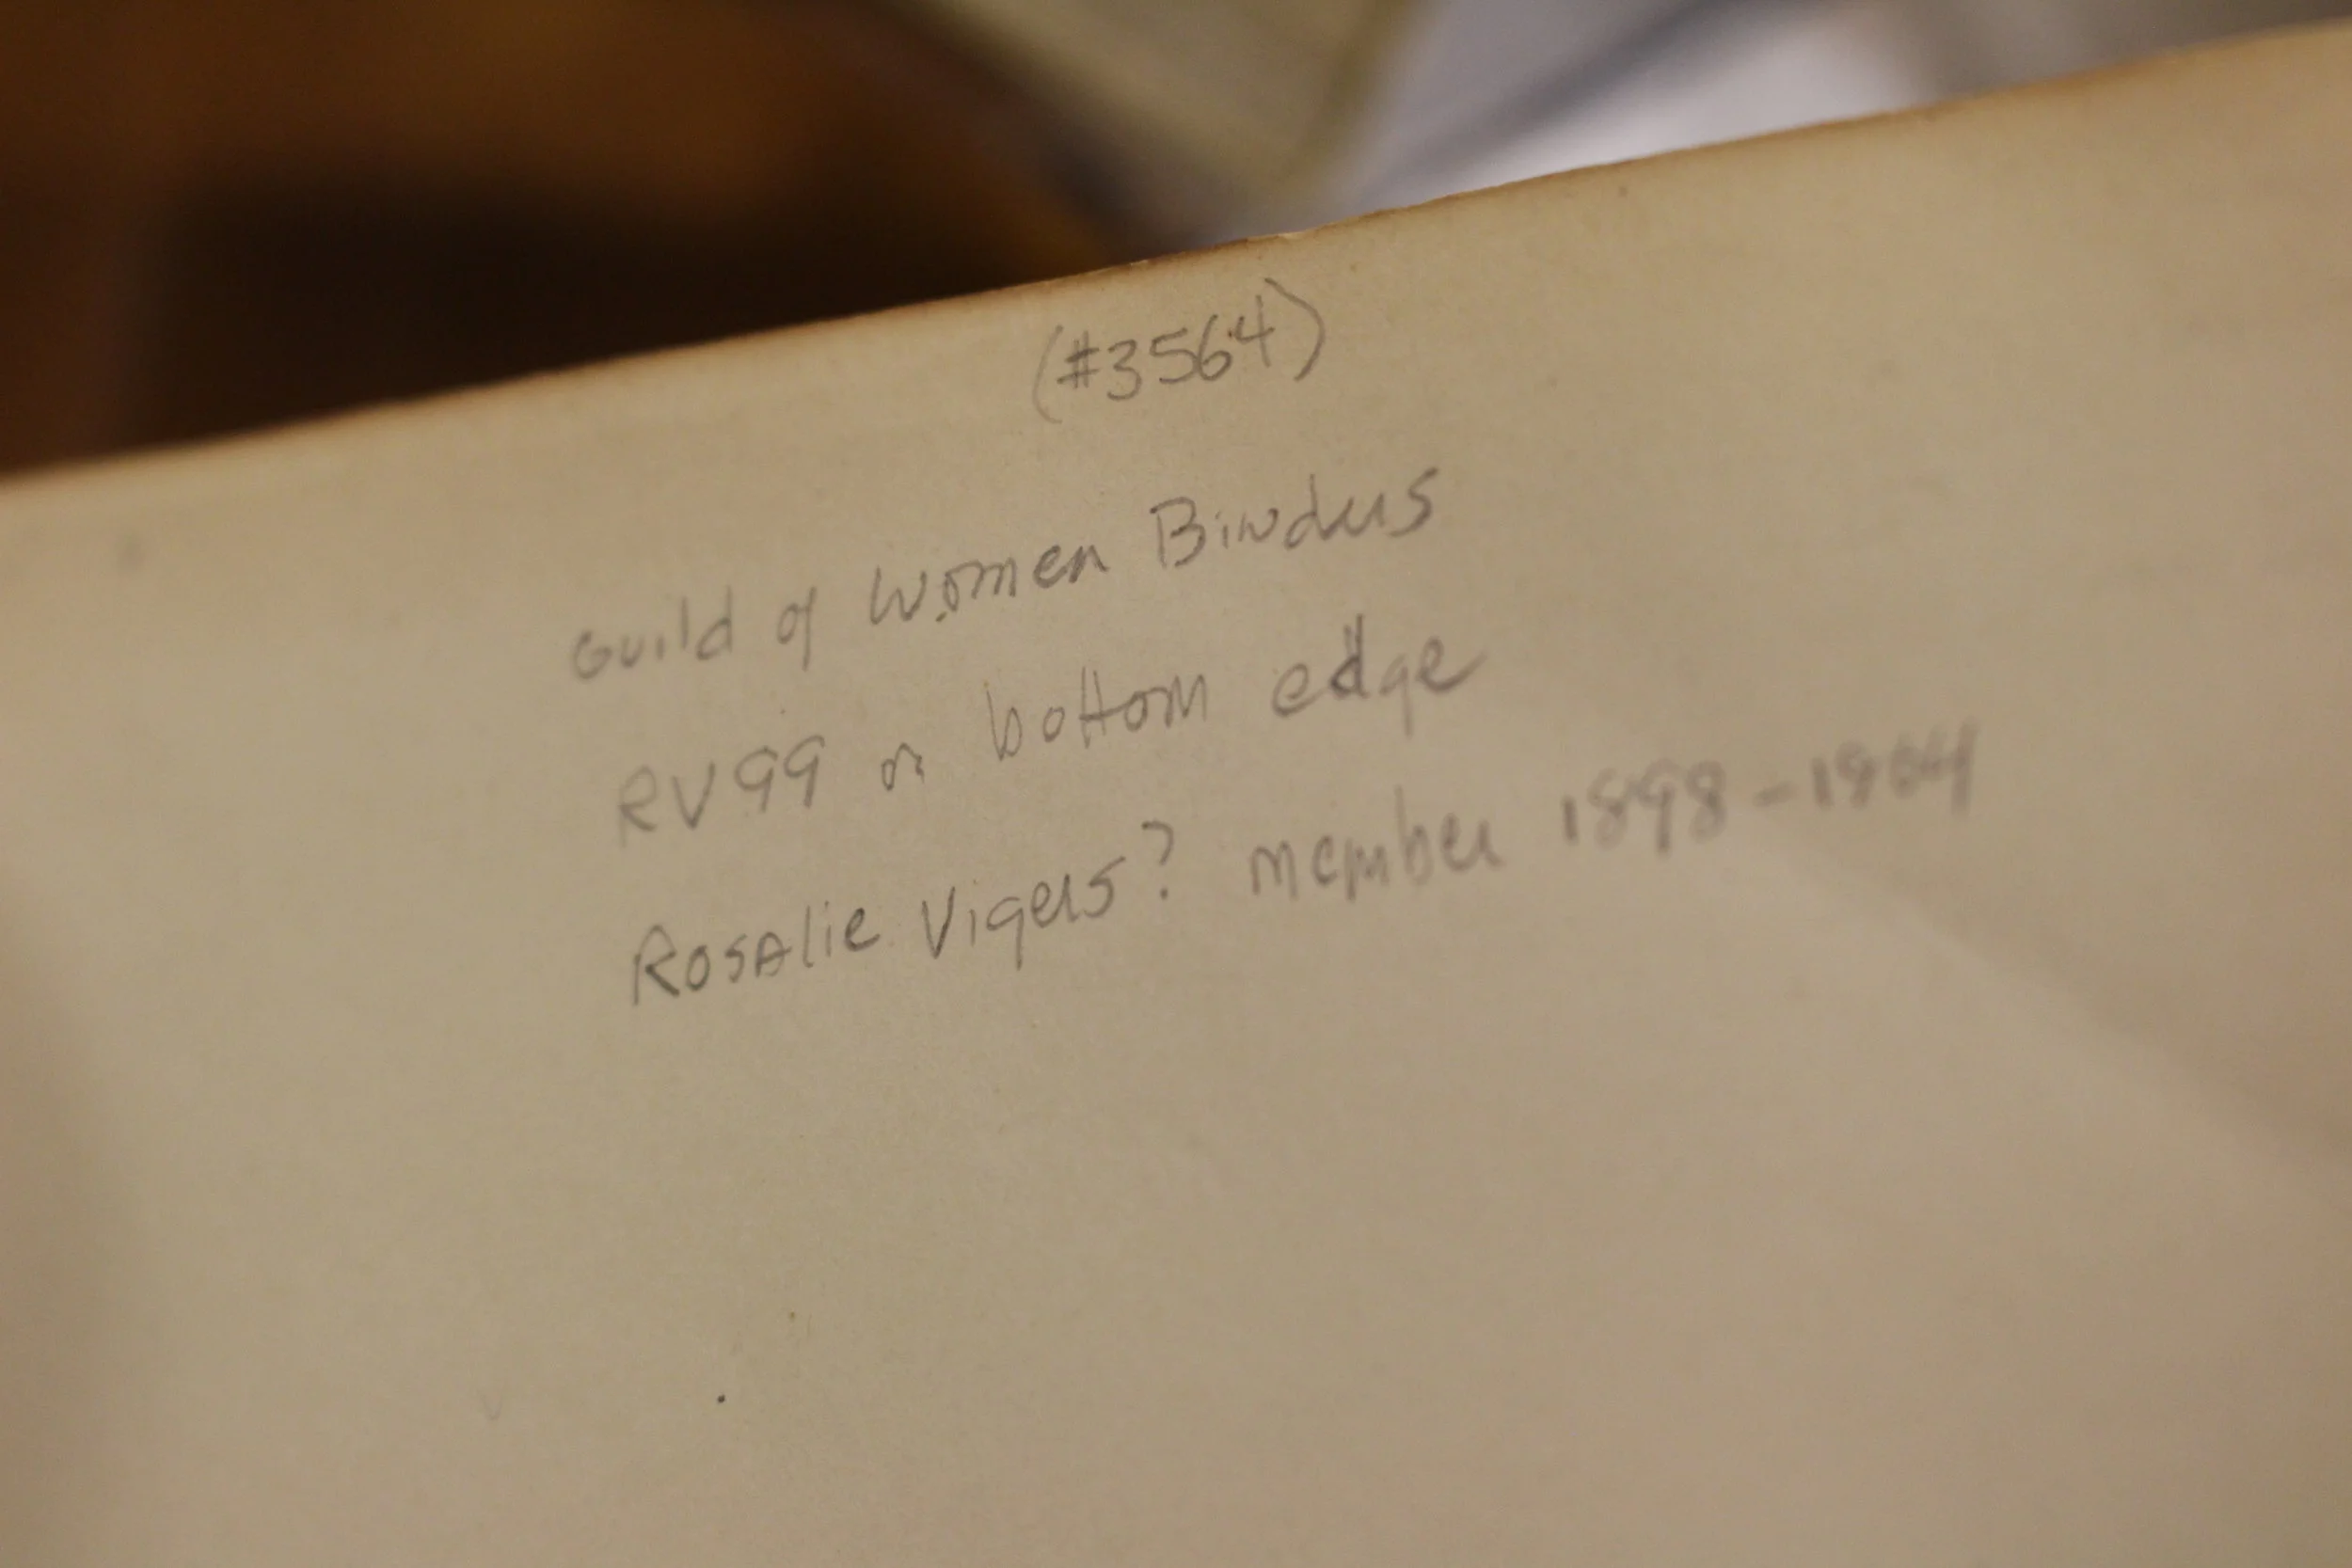 (#3564)
Guild of Women Binders
RV99 on bottom edge
Rosalie Vigers? member 1898-1904